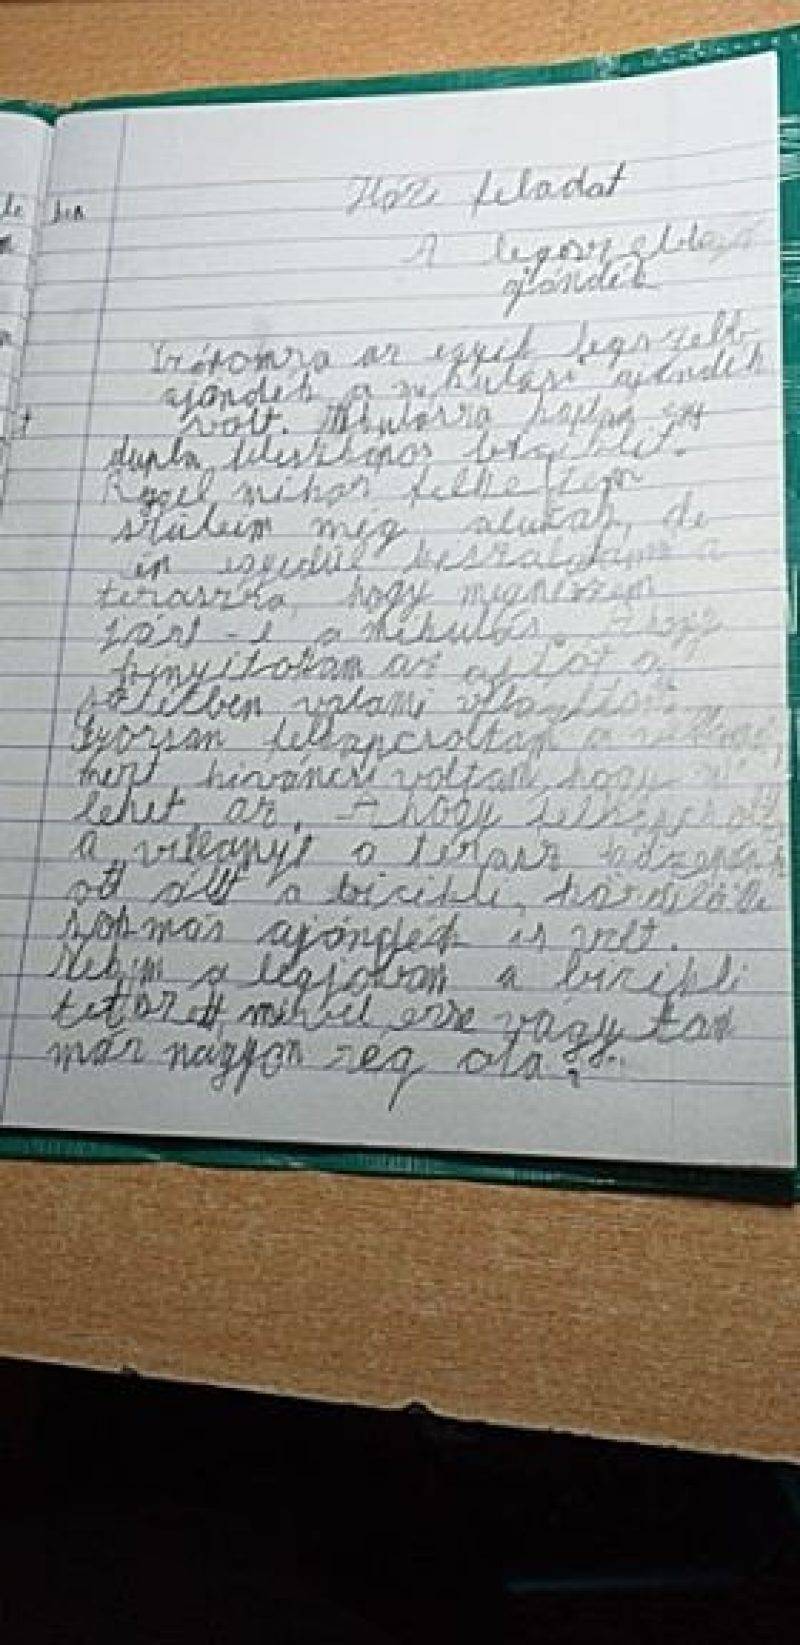 Házi feladat
A legörvendetesebb
ajándék
Számomra az egyik legszebb
ajándék a mikulási ajándék
volt. Mikulásra kaptam egy
dupla teleszkópos biciklit.
Reggel mikor felkeltem
szüleim még aludtak, de
én egyedül kiszaladtam a
teraszra, hogy megnézzem
járt-e a mikulás. Ahogy
kinyitottam az ajtót a
sötétben valami világított.
Gyorsan felkapcsoltam a villanyt,
mert kiváncsi voltam, hogy mi
lehet az. Ahogy felkapcsoltam
a villanyt a terasz közepén
ott állt a bicikli, körülötte
sok más ajándék is volt.
Nekem a legjobban a bicikli
tetszett, mivel erre vágytam
már nagyon rég óta.